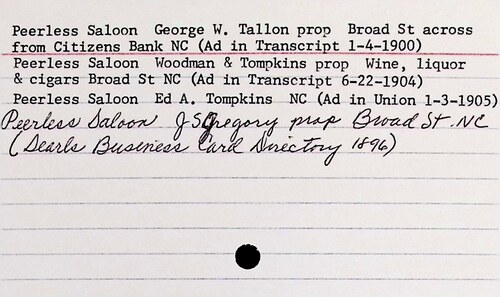 Peerless Saloon  George W. Tallon prop  Broad St across
from Citizens Bank NC (Ad in Transcript 1-4-1900)
Peerless Saloon  Woodman & Tompkins prop  Wine, liquor
& cigars Broad St NC (Ad in Transcript 6-22-1904)
Peerless Saloon  Ed A. Tompkins  NC (Ad in Union 1-3-1905)
Peerless Saloon J S Gregory prop Broad St. NC
(Searls Business Card Directory 1896)